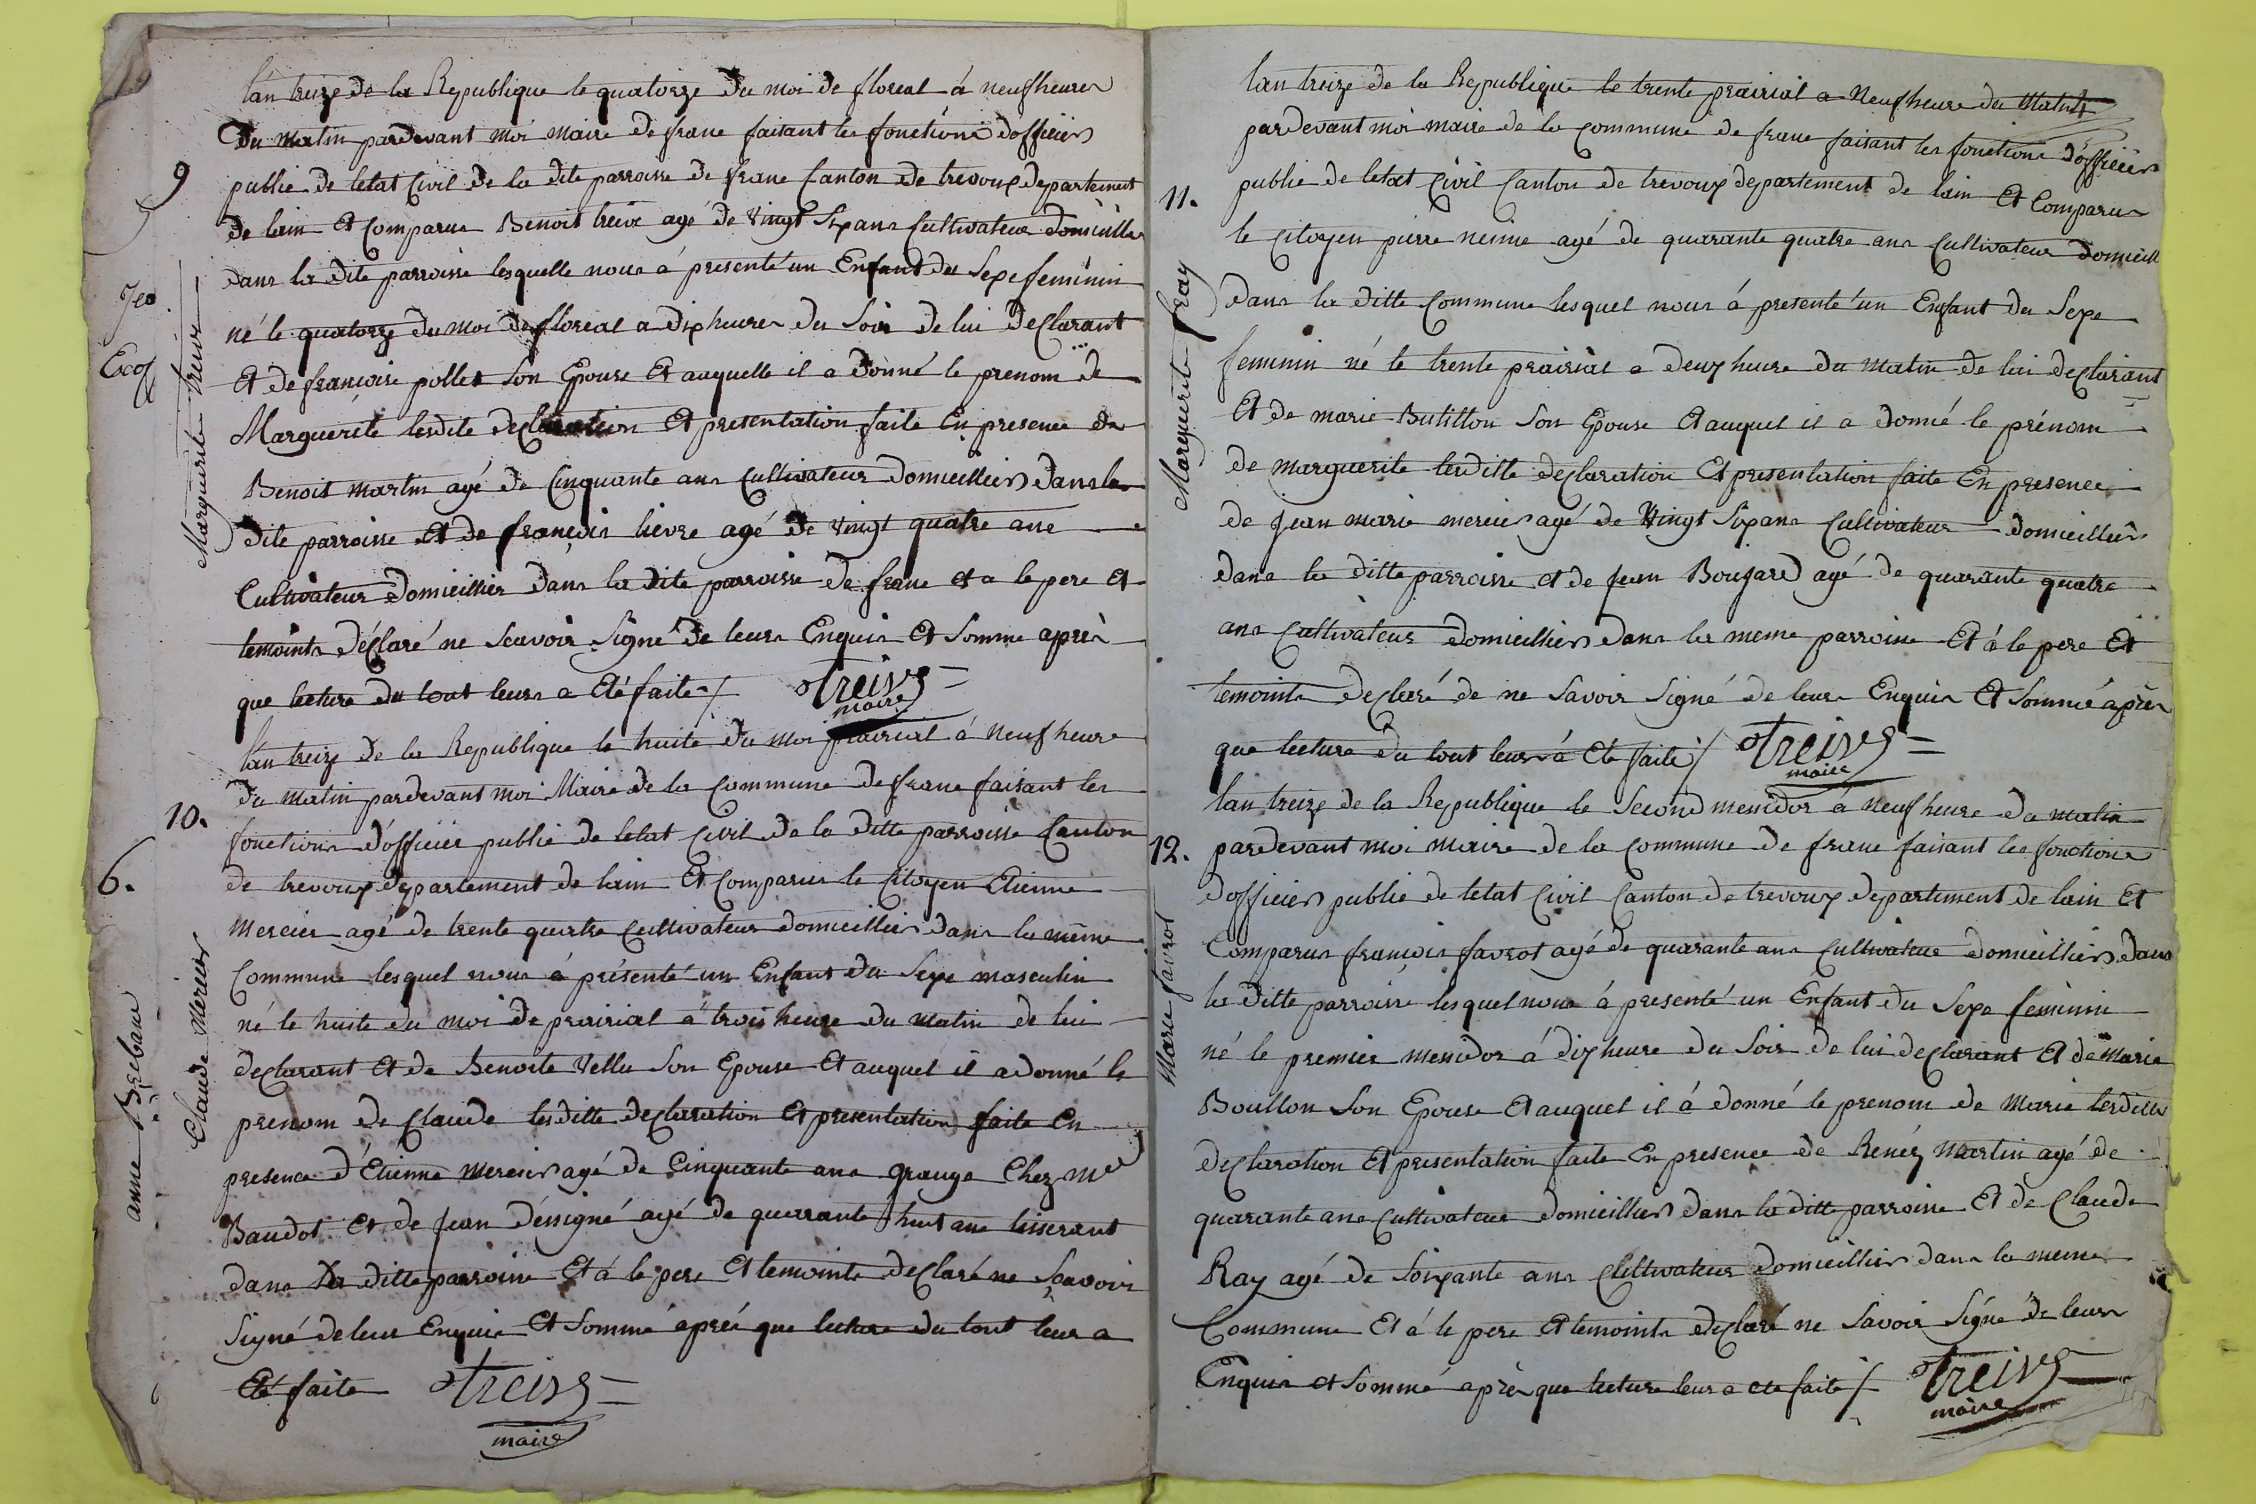 9
Marguerite treive
l'an treize de la Republique le quatorze du moi de floreal à neuf heures
Du matin pardevant moi maire de frane faisant les fonctions dofficier
public de letat Civil de la dite parroisse de frane Canton de trevoux departement
de lain Et Comparu Benoit treive agé de vingt Six ans Cultivateur domicillier
dans la dite parroisse lesquelle nous à presenté un Enfant du Sexe feminin
né le quatorze du moi de floreal a dix heures du Soir de lui declarant
Et de francoise pollet Son Epouse Et auquelle il a donné le prenom de
Marguerite lesdite declaration Et presentation faite En presence de
Benoit martin agé de Cinquante ans Cultivateur domicillier dans la
dite parroisse Et de françois lievre agé de vingt quatre ans
Cultivateur domicillier dans la dite parroisse de frane et a le pere Et
temoints déclaré ne Scavoir Signé de leurs Enquis Et Somme après
que lecture du tout leurs a Eté faite /. Treive
maire
10.
6.
Claude Mercier
anne Brebane
l'an treize de la Republique le huite du moi prairial à neuf heure
du matin pardevant moi Maire de la Commune de frane faisant les
fonctions d'officier public de letat Civil de la ditte parroisse Canton
de trevoux departement de lain Et Comparu le Citoyen Etienne
Mercier agé de trente quatre Cultivateur domicillier dans la même
Commune lesquel nous à présenté un Enfant du Sexe masculin
né le huite du moi de prairial à trois heure du matin de lui
declarant Et de Benoite Vellu Son Epouse Et auquel il a donné le
prenom de Claude lesditte declaration Et presentation faite En
presence d'Etienne Mercier agé de Cinquante ans grange Chez Mr
Baudot Et de Jean déssigné agé de quarante huit ans tisserant
dans la ditte parroisse Et à le pere Et temoints declaré ne Scavoir
Signé de leur Enquis Et Sommé après que lecture du tout leur a
Eté faite Treive
maire
11.
Marguerite Fray
lan treize de la Republique le trente prairial a Neuf heure du Matin
pardevant moi maire de la Commune de frane faisant les fonctions d'officier
public de letat Civil Canton de trevoux departement de lain Et Comparu
le Citoyen pierre agé de quarante quatre ans Cultivateur domicill
dans la ditte Commune lesquel nous à presenté un Enfant du Sexe
feminin né le trente prairial a deux heure du matin de lui declarant
Et de marie Butillon Son Epouse Et auquel il a donné le prénom
de marguerite lesditte declaration Et presentation faite En presence
de jean marie mercier agé de Vingt Six ans Cultivateur domicillier
dans la ditte parroisse et de jean Boujard agé de quarante quatre
ans Cultivateur domicillier dans la meme parroisse Et à le pere Et
temoints declaré de ne Savoir Signé de leurs Enquis Et Sommé après
que lecture du tout leur à Eté faite / Treive
maire
12.
Marie favrot
lan treize de la Republique le Second messidor à neuf heure du matin
pardevant moi Maire de la Commune de frane faisant les fonctions
dofficier public de letat Civil Canton de trevoux departement de lain Et
Comparu françois favrot agé de quarante ans Cultivateur domicillier dans
la ditte parroisse lesquel nous à presenté un Enfant du Sexe feminin
né le premier messidor à dix heure du Soir de lui declarant Et de Marie
Boullon Son Epouse Et auquel il à donné le prenom de Marie lesditte
declaration Et presentation faite En presence de Renéz Martin agé de
quarante ans Cultivateur domicillier dans la ditte parroisse Et de Claude
Ray agé de Soixante ans Cultivateur domicillier dans la meme
Commune Et à le pere Et temoints declaré ne Savoir Signé de leurs
Enquis et Sommé après que lecture leur a ete faite / Treive
maire